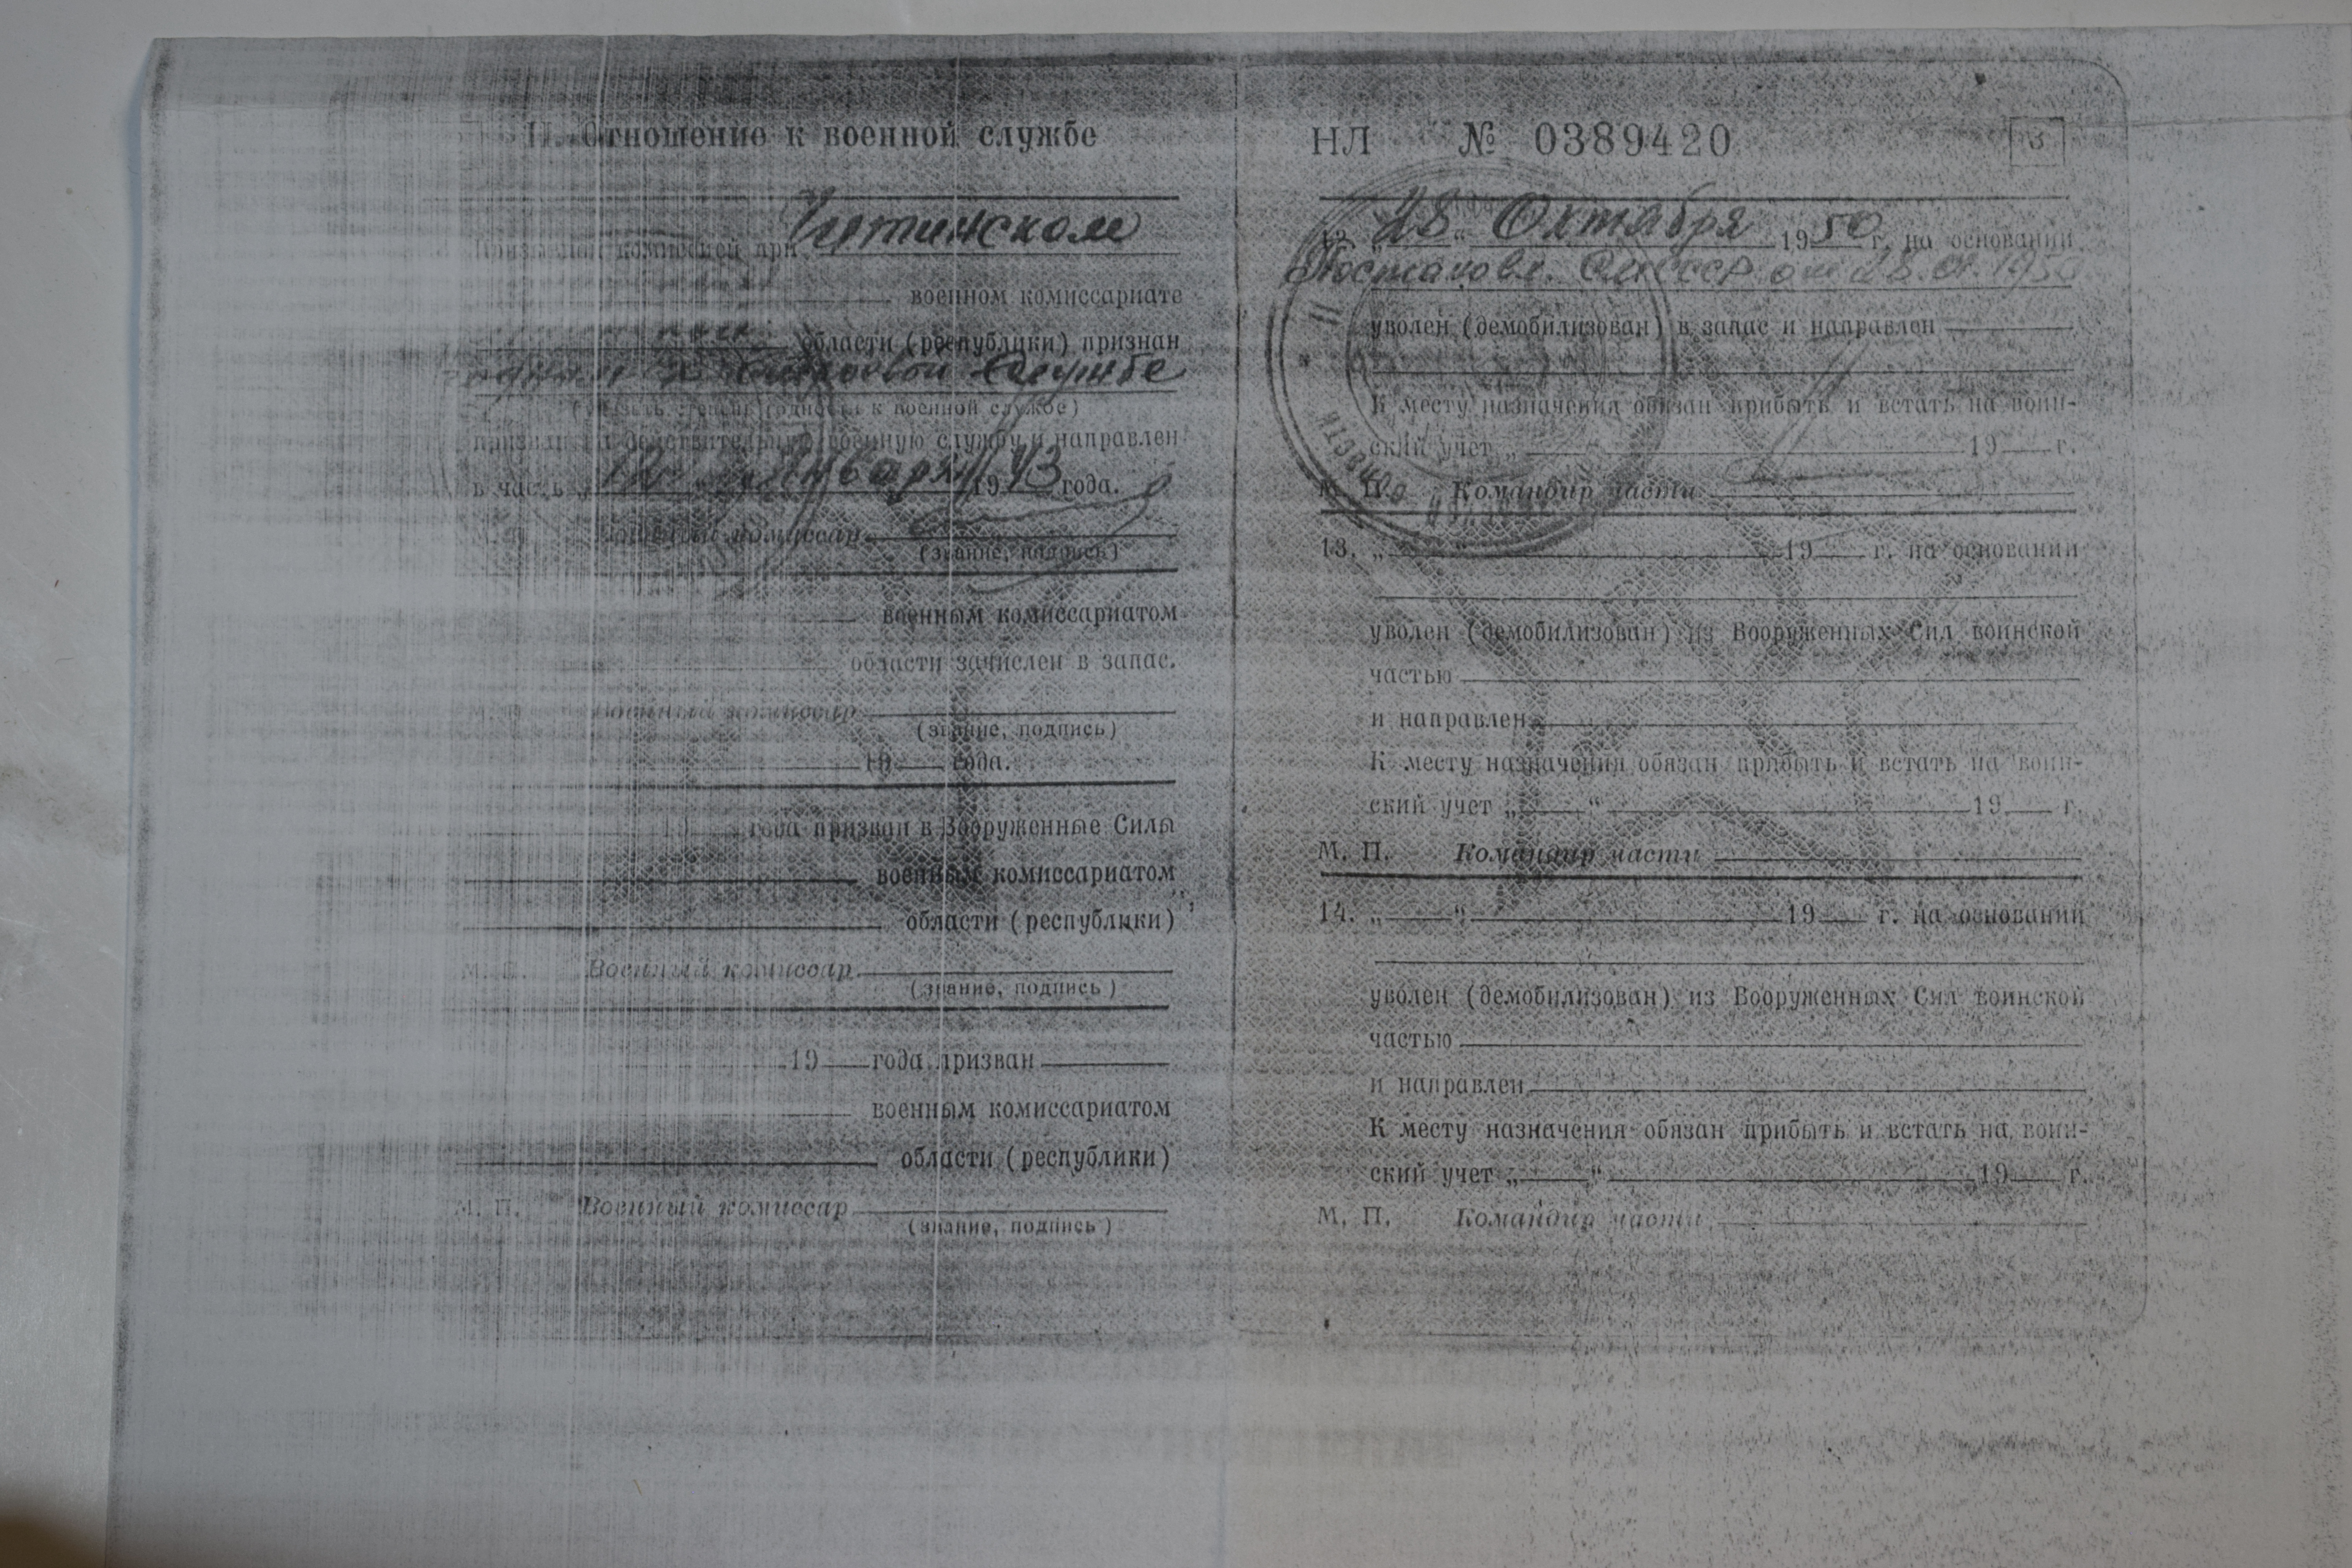 II. Отношение к военной службе
Призывной комиссией при Читинском
военном комиссариате
области (республики) признан
годным к строевой службе
(указать степень годности к военной службе)
призван на действительную военную службу и направлен
в часть Января 1943 года.
Военный комиссар
(звание, подпись)
военным комиссариатом
области зачислен в запас.
М. П. Военный комиссар
(звание, подпись)
19 года.
19 года призван в Вооруженные Силы
военным комиссариатом
области (республики)
М. П. Военный комиссар
(звание, подпись)
19 года призван
военным комиссариатом
области (республики)
М. П. Военный комиссар
(звание, подпись)
НЛ № 0389420 3
28 “ Октября 1950 г. на основании
Постановл. СМ СССР от
уволен (демобилизован) в запас и направлен
К месту назначения обязан прибыть и встать на воин-
ский учет „ 19 г.
М. П. Командир части
13. „ “ 19 г. на основании
уволен (демобилизован) из Вооруженных Сил воинской
частью
и направлен
К месту назначения обязан прибыть и встать на воин-
ский учет „ “ 19 г.
М. П. Командир части
14. „ “ 19 г. на основании
уволен (демобилизован) из Вооруженных Сил воинской
частью
и направлен
К месту назначения обязан прибыть и встать на воин-
ский учет „ “ 19 г.
М. П. Командир части